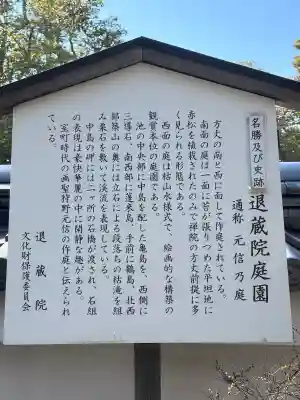 名勝及び史跡
退蔵院庭園
通称 元信乃庭
方丈の南と西に面して作庭されている。
南面の庭は一面に苔が張りつめた平坦地に
赤松を植栽されたのみで禅院の方丈前提に多
く見られる形態である。
西面の庭は枯山水様式で、絵画的な構築の
観賞本位の庭園である。
池の中央部に中島を配した亀島を、西側に
三尊石、南西部に蓬来島、手前に鶴島、北西
部築山の奥には立石による段落ちの枯滝を組
み栗石を敷いて渓流を表現している。
中島の岬には二ヶ所の石橋が渡され、石組
の表現は豪快華麗の中に閑静な趣がある。
室町時代の画聖狩野元信の作庭と伝えられ
ている。
退蔵院
文化財保護委員会